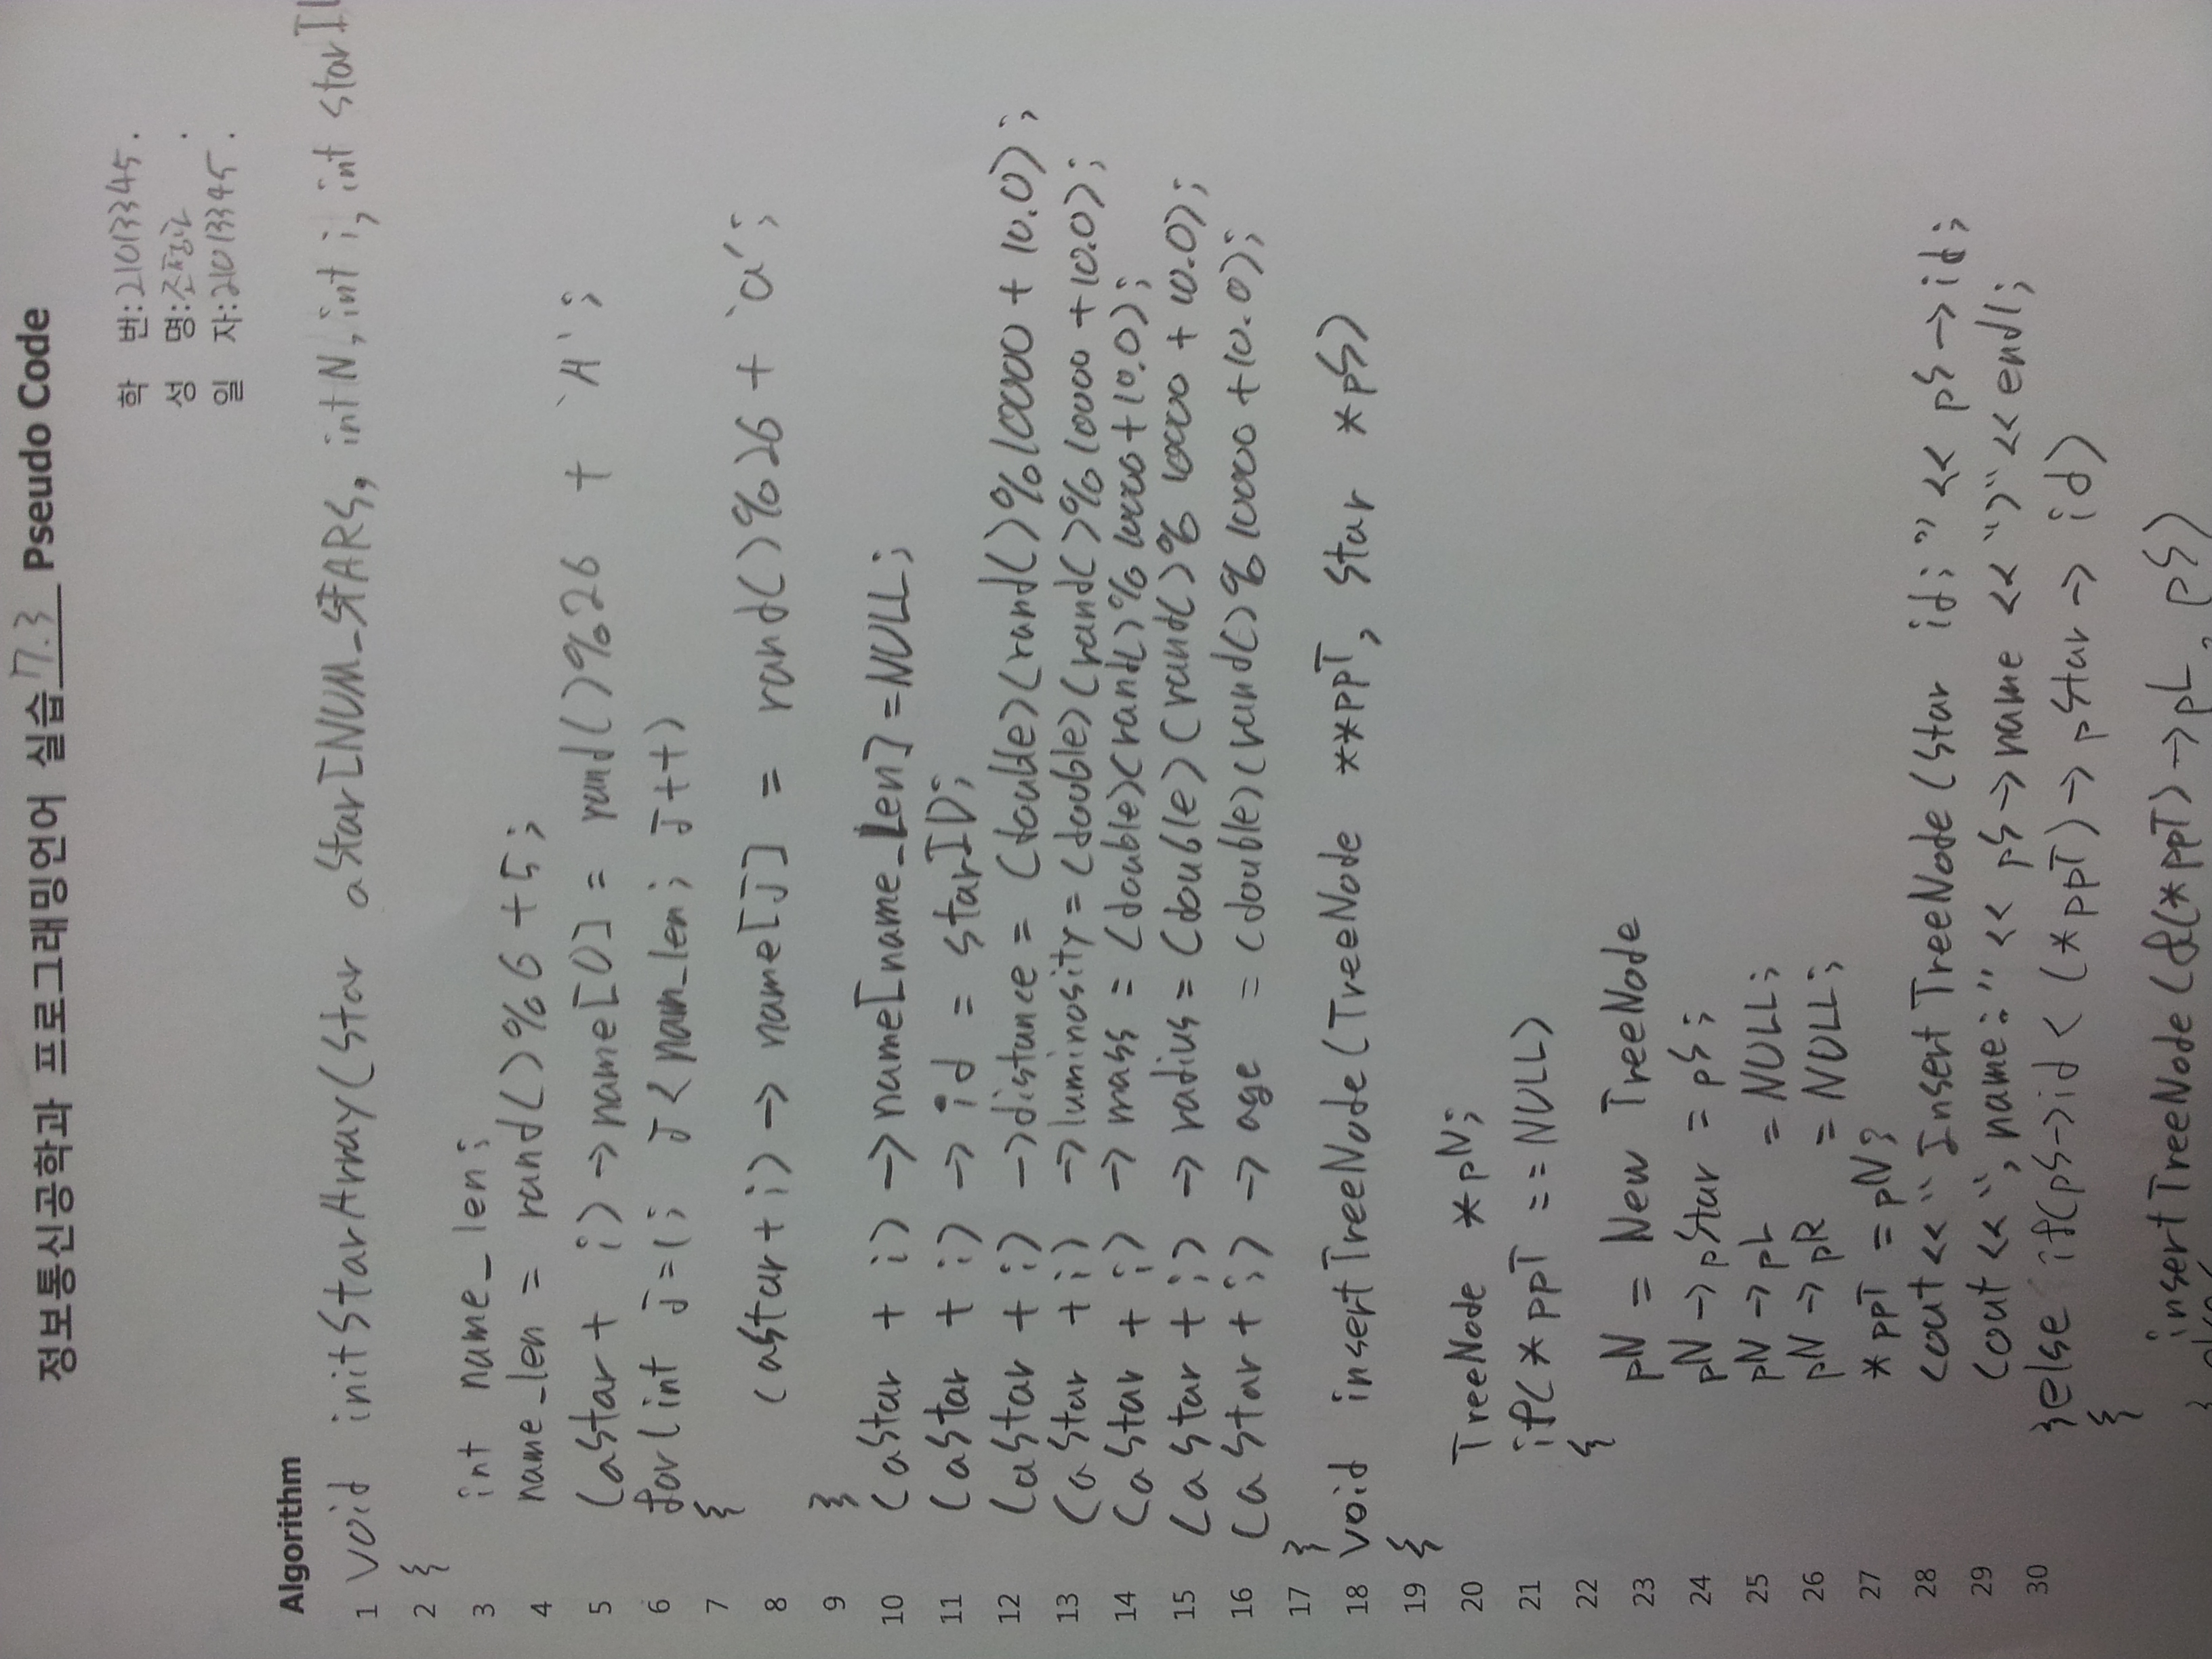 정보통신공학과 프로그래밍언어 실습 7.3 Pseudo Code
학 번:21013345.
성 명:
일 자:21013345.
Algorithm
1 void initStarArray(Star aStar[NUM_STARS, int N, int i, int starI
2 {
3 int name_len;
4 name_len = rand()%6+5;
5 (aStar + i)->name[0] = rand()%26 + 'A';
6 for(int J=1; J<nam_len; J++)
7 {
8 (aStar+i)->name[J] = rand()%26 + 'a';
9 }
10 (aStar + i)->name[name_Len]=NULL;
11 (aStar + i)->id = starID;
12 (aStar + i)->distance = (double)(rand()%10000 + 10.0);
13 (aStar + i)->luminosity=(double)(rand()%10000 +10.0);
14 (aStar + i)->mass = (double)(rand()%10000+10.0);
15 (aStar + i)->radius = (double)(rand()%10000 + 10.0);
16 (aStar + i)->age = (double)(rand()%10000 +10.0);
17 }
18 void insertTreeNode(TreeNode **ppT, Star *pS)
19 {
20 TreeNode *pN;
21 if(*ppT == NULL)
22 {
23 pN = New TreeNode
24 pN->pStar = pS;
25 pN->pL = NULL;
26 pN->pR = NULL;
27 *ppT = pN;
28 cout<<"InsertTreeNode(Star id:"<< pS->id;
29 cout<<",name:"<< pS->name <<")"<<endl;
30 }else if(pS->id < (*ppT)->pStar->id)
{
insertTreeNode(&(*ppT)->pL, pS)